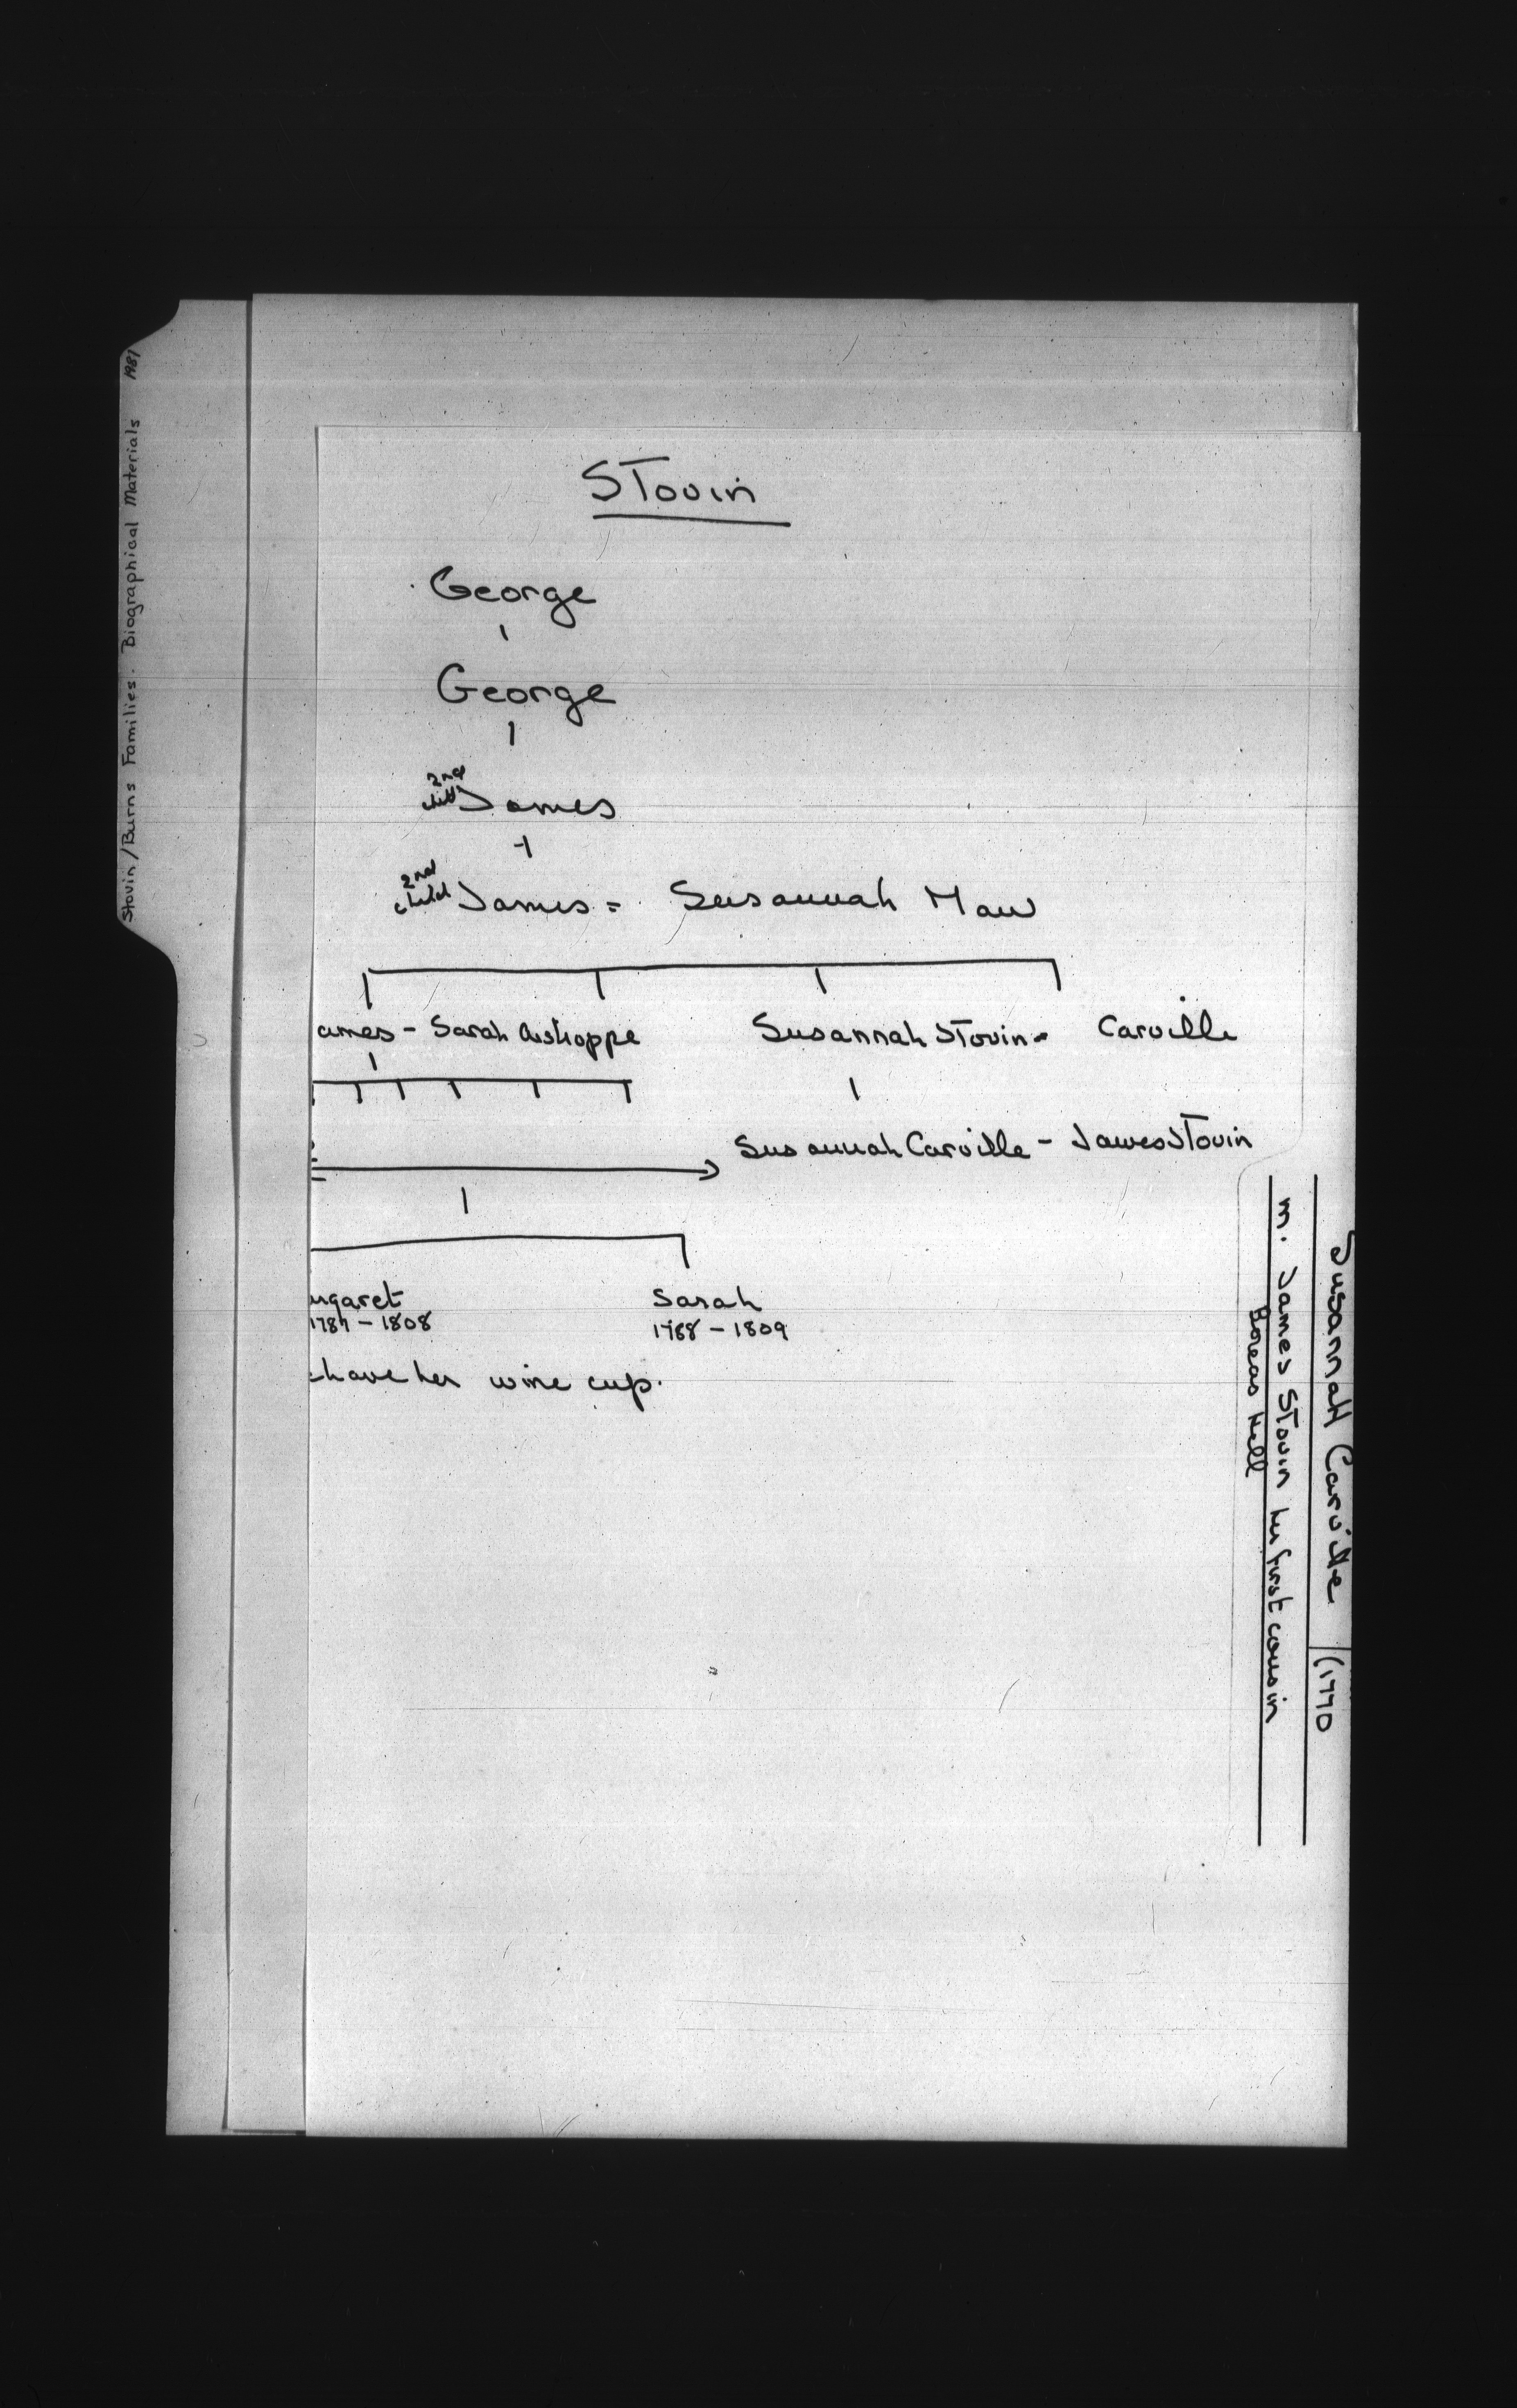 Stovin/Burns Families. Biographical Materials 1981
Stovin
George
George
2nd
child James
2nd
child James = Susannah Maw
ames - Sarah
Susannah Stovin = Carville
Susannah Carville - James Stovin
argaret Sarah
1787 - 1808 1788 - 1809
have her wine cup.
Susannah Carville (1770
m. James Stovin her first cousin
Boreas Hill